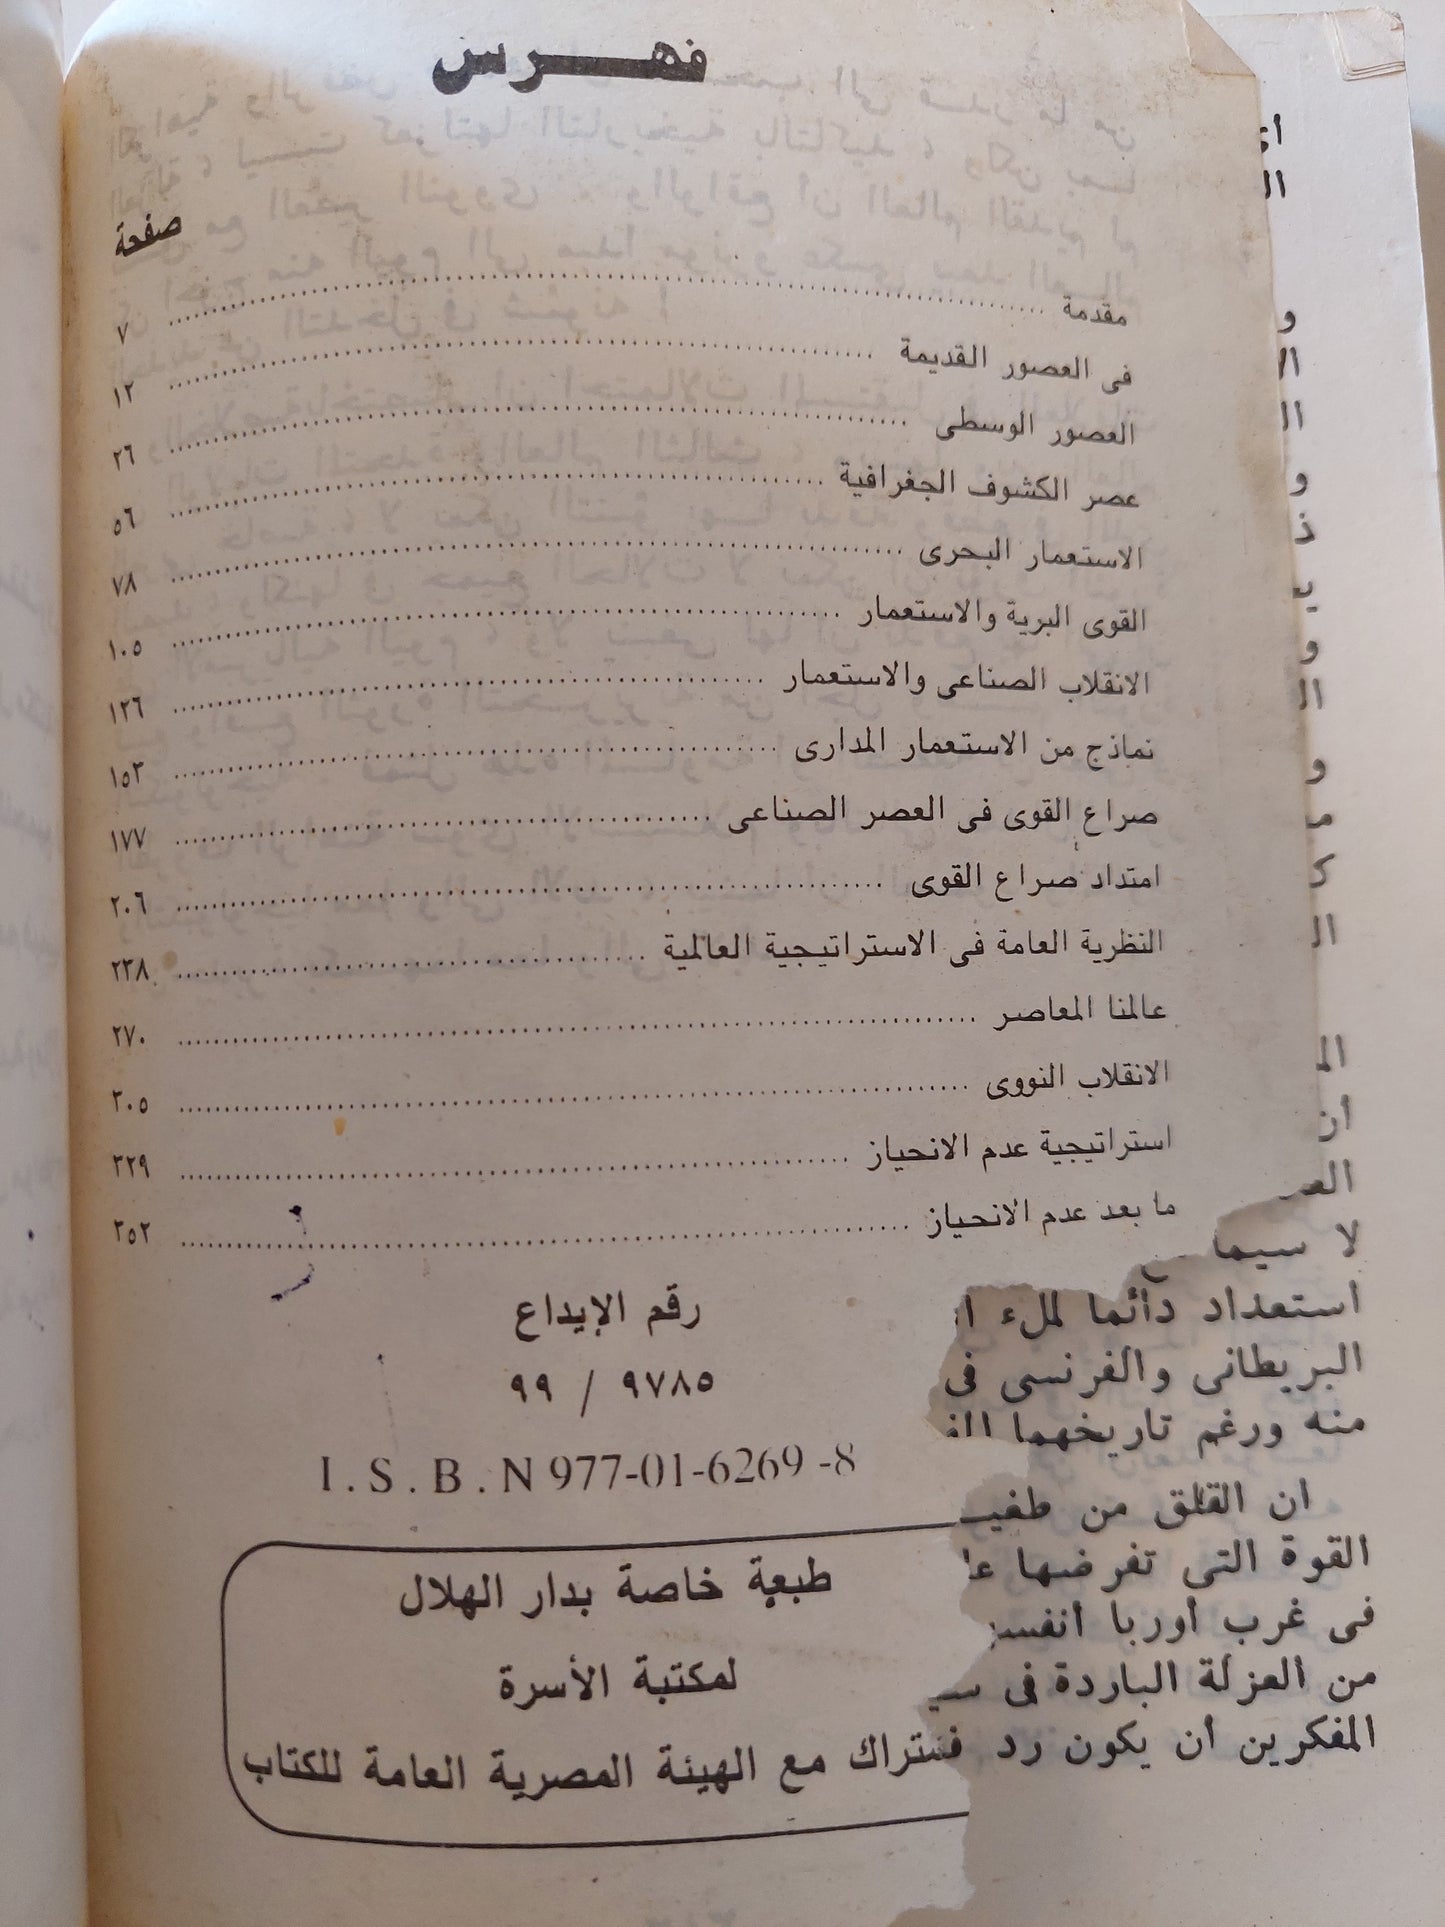 فهرس
صفحة
مقدمة ........ ٧
فى العصور القديمة ........ ١٢
العصور الوسطى ........ ٢٦
عصر الكشوف الجغرافية ........ ٥٦
الاستعمار البحرى ........ ٧٨
القوى البرية والاستعمار ........ ١٠٥
الانقلاب الصناعى والاستعمار ........ ١٢٦
نماذج من الاستعمار المدارى ........ ١٥٣
صراع القوى فى العصر الصناعى ........ ١٧٧
امتداد صراع القوى ........ ٢٠٦
النظرية العامة فى الاستراتيجية العالمية ........ ٢٣٨
عالمنا المعاصر ........ ٢٧٠
الانقلاب النووى ........ ٣٠٥
استراتيجية عدم الانحياز ........ ٣٢٩
ما بعد عدم الانحياز ........ ٣٥٢
رقم الإيداع
٩٧٨٥ / ٩٩
I.S.B.N 977-01-6269-8
طبعة خاصة بدار الهلال
لمكتبة الأسرة
مع الهيئة المصرية العامة للكتاب
لا سيما
استعداد دائما لملء
البريطانى والفرنسى فى
منه ورغم تاريخهما
ان القلق من
القوة التى تفرضها
فى غرب أوربا
من العزلة الباردة فى
المفكرين أن يكون رد